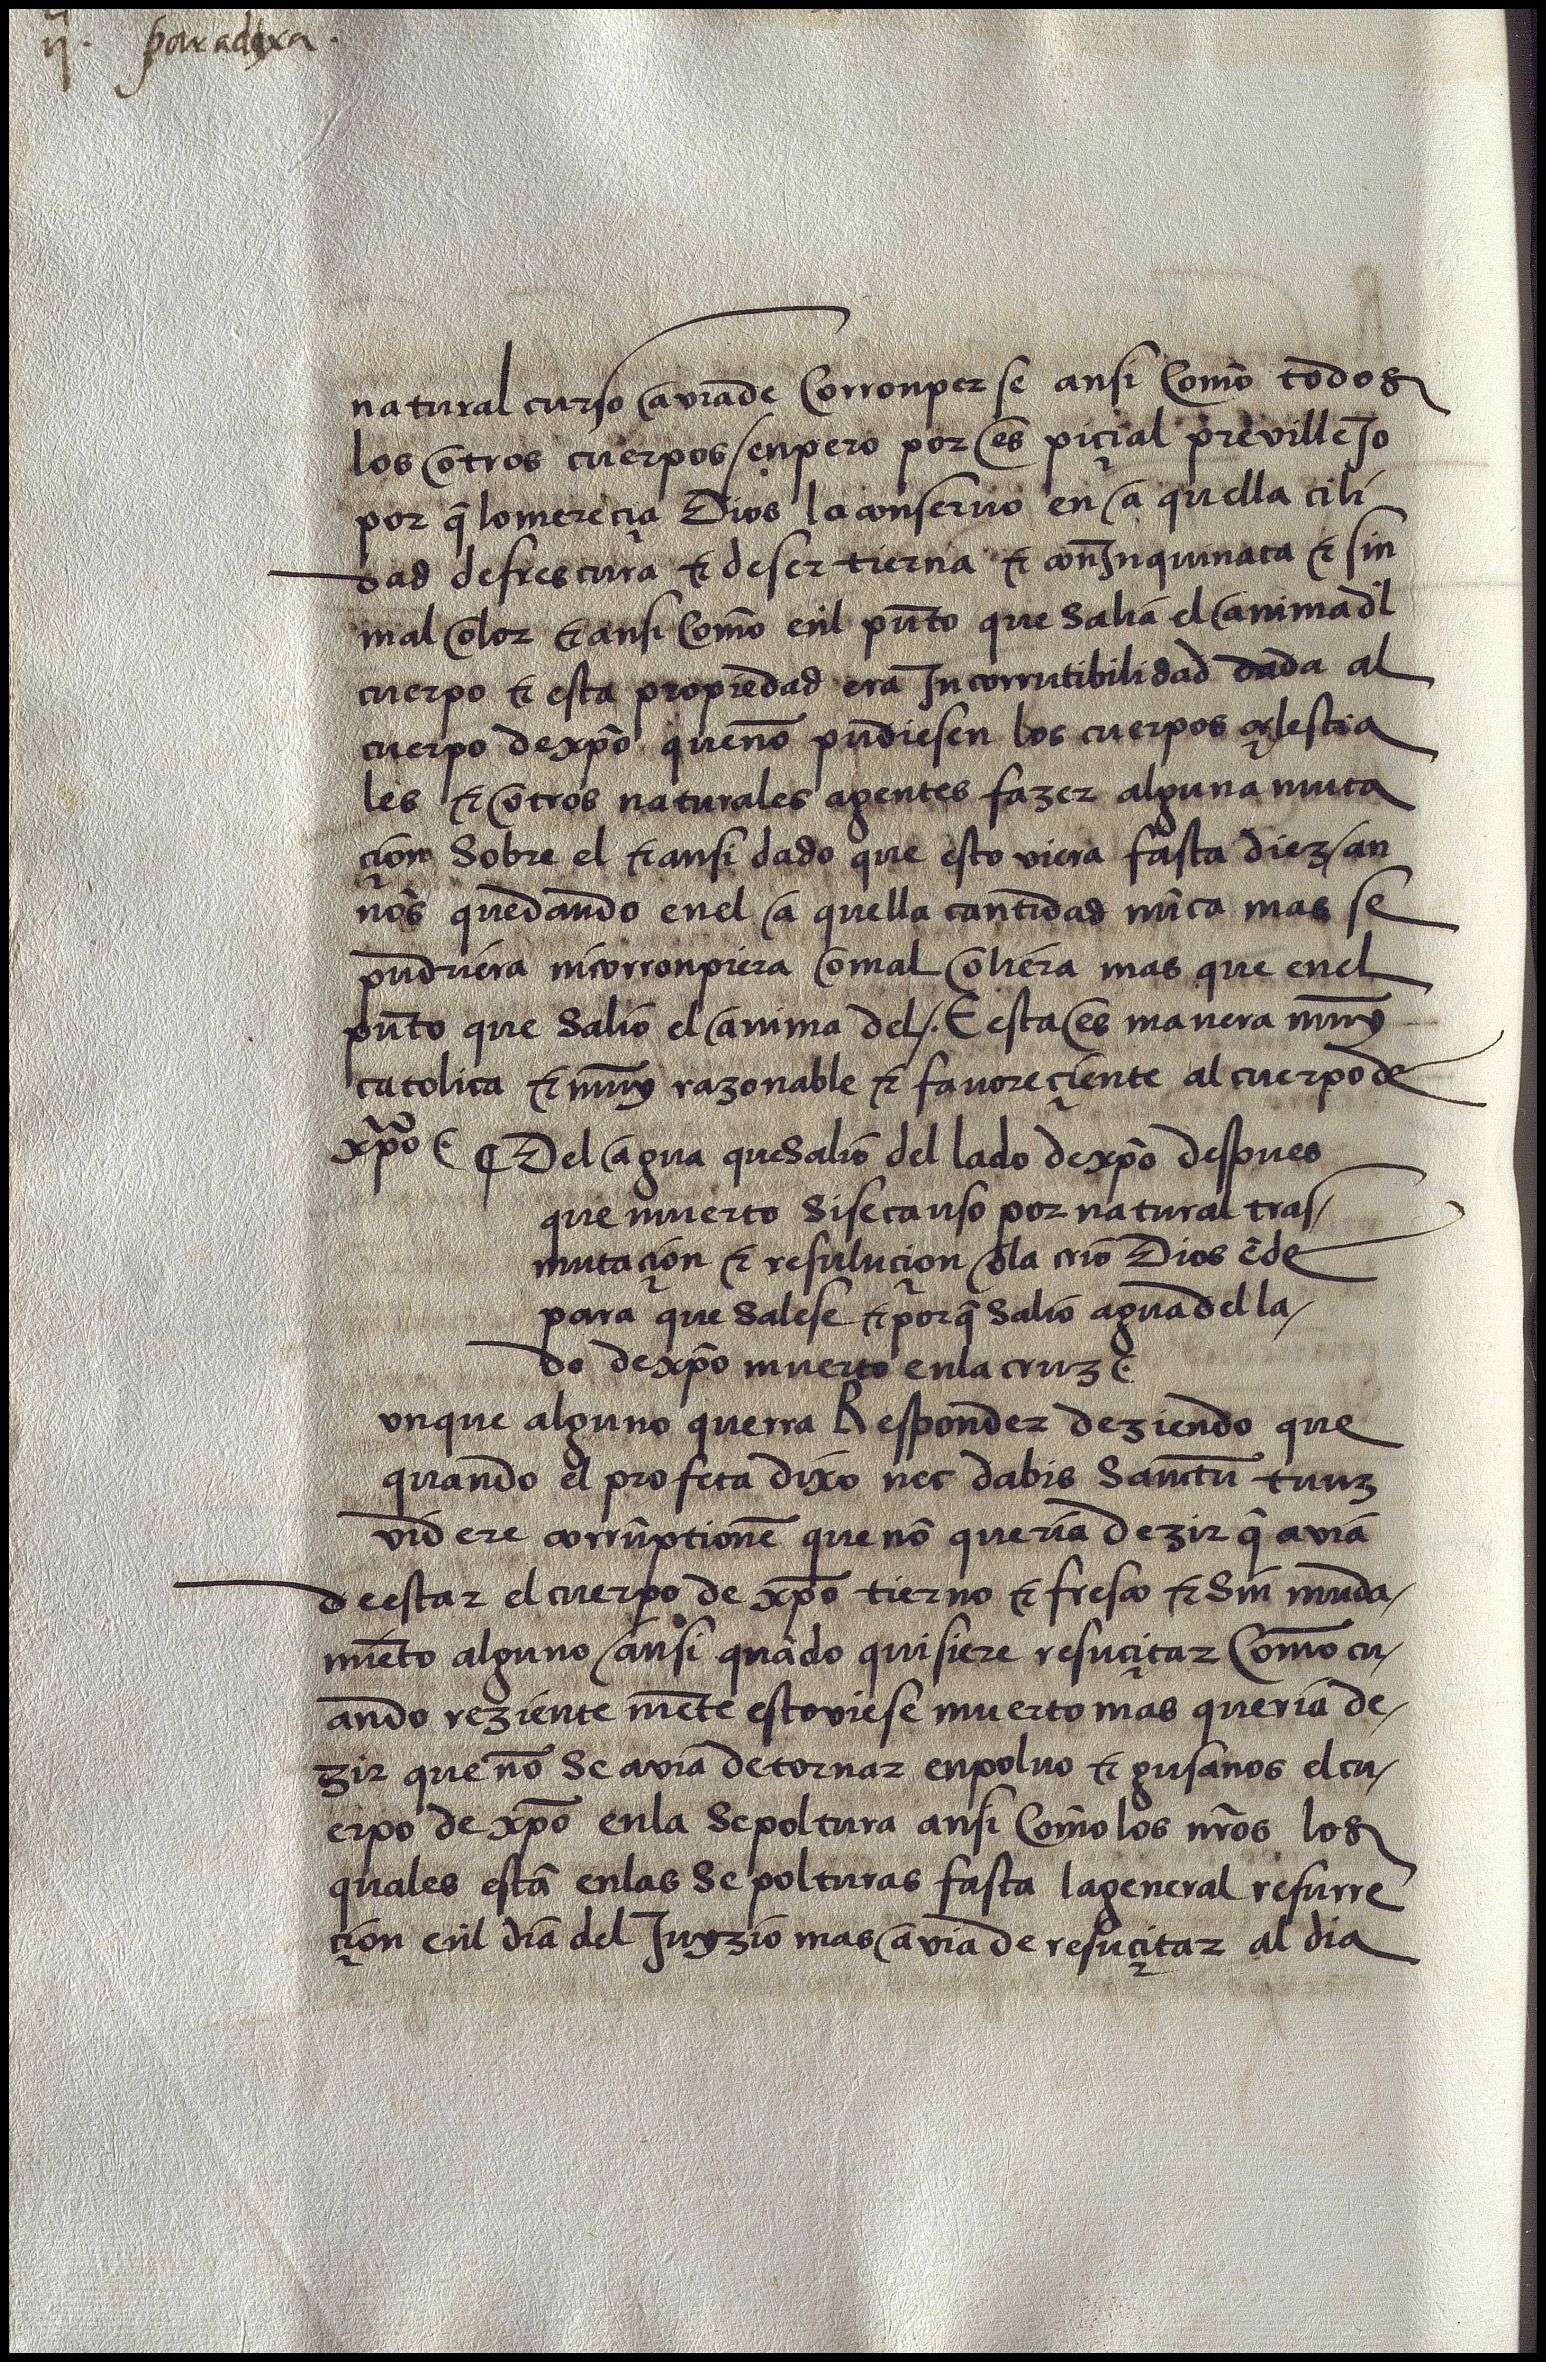 ij. paradoxa.
natural curso avia de corronper se ansi como todos
los otros cuerpos / enpero por es piçial previllejo
por q̃ lo mereçia Dios lo conservo en a quella cali
dad de frescura ⁊ de ser tierna ⁊ conjnquinata ⁊ sin
mal olor ⁊ ansi como enl punto que salia el anima dl
cuerpo ⁊ esta propiedad era Incorrutibilidad dada al
cuerpo de xp̃o que nõ pudiesen los cuerpos çelestia
les ⁊ otros naturales agentes fazer alguna muta
çion sobre el ⁊ ansi dado que estoviera fasta diez an
nos quedando enel a quella cantidad nũca mas se
pudriera ni corronpiera o mal oliera mas que enel
punto que salio el anima del /. E esta es manera muy
catolica ⁊ muy razonable ⁊ favoreçiente al cuerpo de
xp̃o
¶ Del agua que salio del lado de xp̃o despues
que muerto si se causo por natural tras/
mutaçion ⁊ resuluçion o la crio Dios ẽde
para que salese ⁊ porq̃ salio agua del la/
do de xp̃o muerto enla cruz
vnque alguno querra Responder deziendo que
quando el profeta dixo nec dabis sanctũ tuuz
videre corrũptionẽ que nõ queria dezir q̃ avia
de estar el cuerpo de xp̃o tierno ⁊ fresco ⁊ sin muda/
miẽto alguno / ansi quãdo quisiere resuçitar como cu/
ando reziente mẽte estoviese muerto mas queria de/
zir que nõ se avia de tornar en polvo ⁊ gusanos el cu/
erpo de xp̃o enla sepoltura ansi como los nr̃os los
quales estã enlas sepolturas fasta la general resurre
çion enl dia del Juyzio mas avia de resuçitar al dia